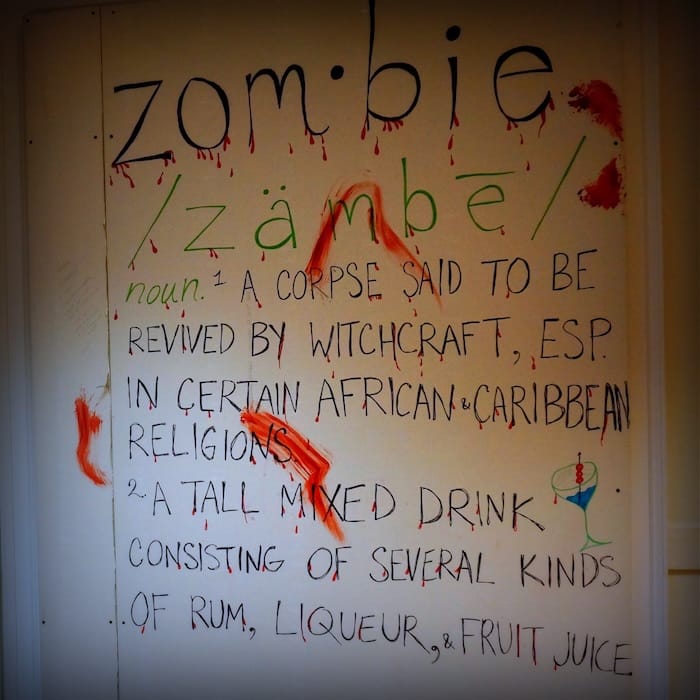 zom·bie
/zämbē/
noun. ¹ A CORPSE SAID TO BE
REVIVED BY WITCHCRAFT, ESP.
IN CERTAIN AFRICAN & CARIBBEAN
RELIGIONS
² A TALL MIXED DRINK
CONSISTING OF SEVERAL KINDS
OF RUM, LIQUEUR, & FRUIT JUICE